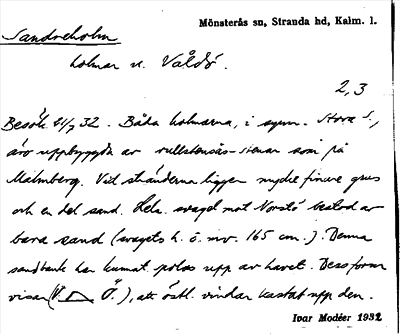 Mönsterås sn, Stranda hd, Kalm. l.
Sandreholm
holmar n. Våldö.
2, 3
Besök 11/7 32. Båda holmarna, i synn. Stora S.,
äro uppbyggda av rullstensås-stenar som på
Malmberg. Vid stränderna ligger mycket finare grus
och en del sand. Hela svaget mot Norstö bestod av
bara sand (svagets h. ö. mv. 165 cm.). Denna
sandbank har kunnat spolas upp av havet. Dess form
visar (V. Ö.), att östl. vindar kastat upp den.
Ivar Modéer 1932